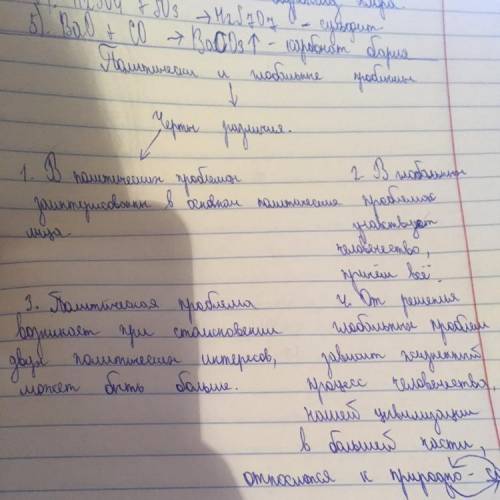 SO3 → H2S2O7 -
5). BaO + CO → BaCO3↑ - карбонат бария
Политические и глобальные проблемы
Черты различия.
1. В политических проблемах
заинтересованы в основном политические
лица.
2. В глобальных
проблемах
участвует
человечество,
причём всё.
3. Политическая проблема
возникает при столкновении
двух политических интересов,
может быть больше.
4. От решения
глобальных проблем
зависит
процесс человечества,
нашей цивилизации
в большей части,
относится к природно -